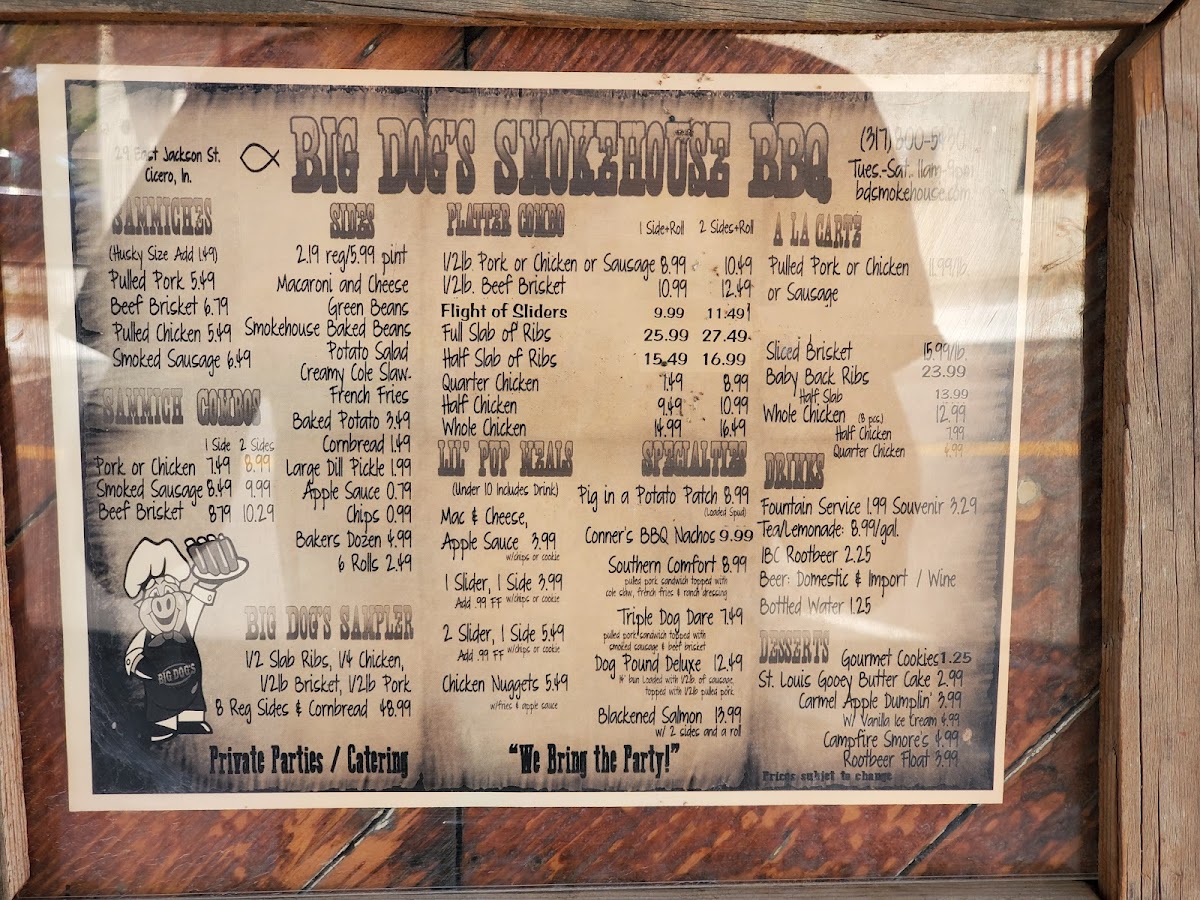 29 East Jackson St.
Cicero, In.
BIG DOG'S SMOKEHOUSE BBQ
Tues.-Sat. 11am-9pm
bdsmokehouse.com
SAMMICHES
(Husky Size Add 1.49)
Pulled Pork 5.49
Beef Brisket 6.79
Pulled Chicken 5.49
Smoked Sausage 6.49
SAMMICH COMBOS
1 Side 2 Sides
Pork or Chicken 7.49 8.99
Smoked Sausage 8.49 9.99
Beef Brisket 8.79 10.29
SIDES
2.19 reg/5.99 pint
Macaroni and Cheese
Green Beans
Smokehouse Baked Beans
Potato Salad
Creamy Cole Slaw
French Fries
Baked Potato 3.49
Cornbread 1.49
Large Dill Pickle 1.99
Apple Sauce 0.79
Chips 0.99
Bakers Dozen 4.99
6 Rolls 2.49
BIG DOG'S
BIG DOG'S SAMPLER
1/2 Slab Ribs, 1/4 Chicken,
1/2lb Brisket, 1/2lb Pork
8 Reg Sides & Cornbread 48.99
Private Parties / Catering
PLATTER COMBO
1 Side+Roll 2 Sides+Roll
1/2lb. Pork or Chicken or Sausage 8.99 10.49
1/2lb. Beef Brisket 10.99 12.49
Flight of Sliders 9.99 11.49
Full Slab of Ribs 25.99 27.49
Half Slab of Ribs 15.49 16.99
Quarter Chicken 7.49 8.99
Half Chicken 9.49 10.99
Whole Chicken 14.99 16.49
LIL' PUP MEALS
(Under 10 Includes Drink)
Mac & Cheese,
Apple Sauce 3.99
w/chips or cookie
1 Slider, 1 Side 3.99
Add .99 FF w/chips or cookie
2 Slider, 1 Side 5.49
Add .99 FF w/chips or cookie
Chicken Nuggets 5.49
w/fries & apple sauce
SPECIALTIES
Pig in a Potato Patch 8.99
(Loaded Spud)
Conner's BBQ Nachos 9.99
Southern Comfort 8.99
pulled pork sandwich topped with
cole slaw, french fries & ranch dressing
Triple Dog Dare 7.49
pulled pork sandwich topped with
smoked sausage & beef brisket
Dog Pound Deluxe 12.49
bun loaded with 1/2lb. of sausage,
topped with 1/2lb pulled pork
Blackened Salmon 13.99
w/ 2 sides and a roll
"We Bring the Party!"
A LA CARTE
Pulled Pork or Chicken 11.99/lb.
or Sausage
Sliced Brisket 15.99/lb.
Baby Back Ribs 23.99
Half Slab 13.99
Whole Chicken (8 pcs.) 12.99
Half Chicken 7.99
Quarter Chicken 4.99
DRINKS
Fountain Service 1.99 Souvenir 3.29
Tea/Lemonade: 8.99/gal.
IBC Rootbeer 2.25
Beer: Domestic & Import / Wine
Bottled Water 1.25
DESSERTS
Gourmet Cookies 1.25
St. Louis Gooey Butter Cake 2.99
Carmel Apple Dumplin' 3.99
W/ Vanilla Ice Cream 4.99
Campfire Smore's 4.99
Rootbeer Float 3.99
Prices subjet to change